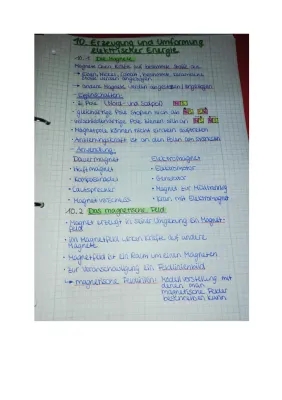 10. Erzeugung und Umformung
elektrischer Energie
10.1 Die Magnete
Magnete üben Kräfte auf bestimmte Stoffe aus.
→ Eisen, Nickel, Cobalt, bestimmte keramische
Stoffe werden angezogen
→ andere Magnete werden abgestoßen/angezogen
Eigenschaften:
2 Pole (Nord- und Südpol)
gleichnamige Pole stoßen sich ab
verschiedenartige Pole ziehen sich an
Magnetpole können nicht einzeln auftreten
Anziehungskraft ist an den Polen am stärksten
Anwendung:
Dauermagnet Elektromagnet
Haftmagnet Elektromotor
Kompassnadel Generator
Lautsprecher Magnet zur Mülltrennung
Magnetverschluss Kran mit Elektromagnet
10.2 Das magnetische Feld
Magnet erzeugt in seiner Umgebung ein Magnet-
feld
Im Magnetfeld wirken Kräfte auf andere
Magnete
Magnetfeld ist ein Raum um einen Magneten
zur Veranschaulichung ein Feldlinienbild
→ magnetische Feldlinien: Modellvorstellung mit
denen man
magnetische Felder
beschreiben kann